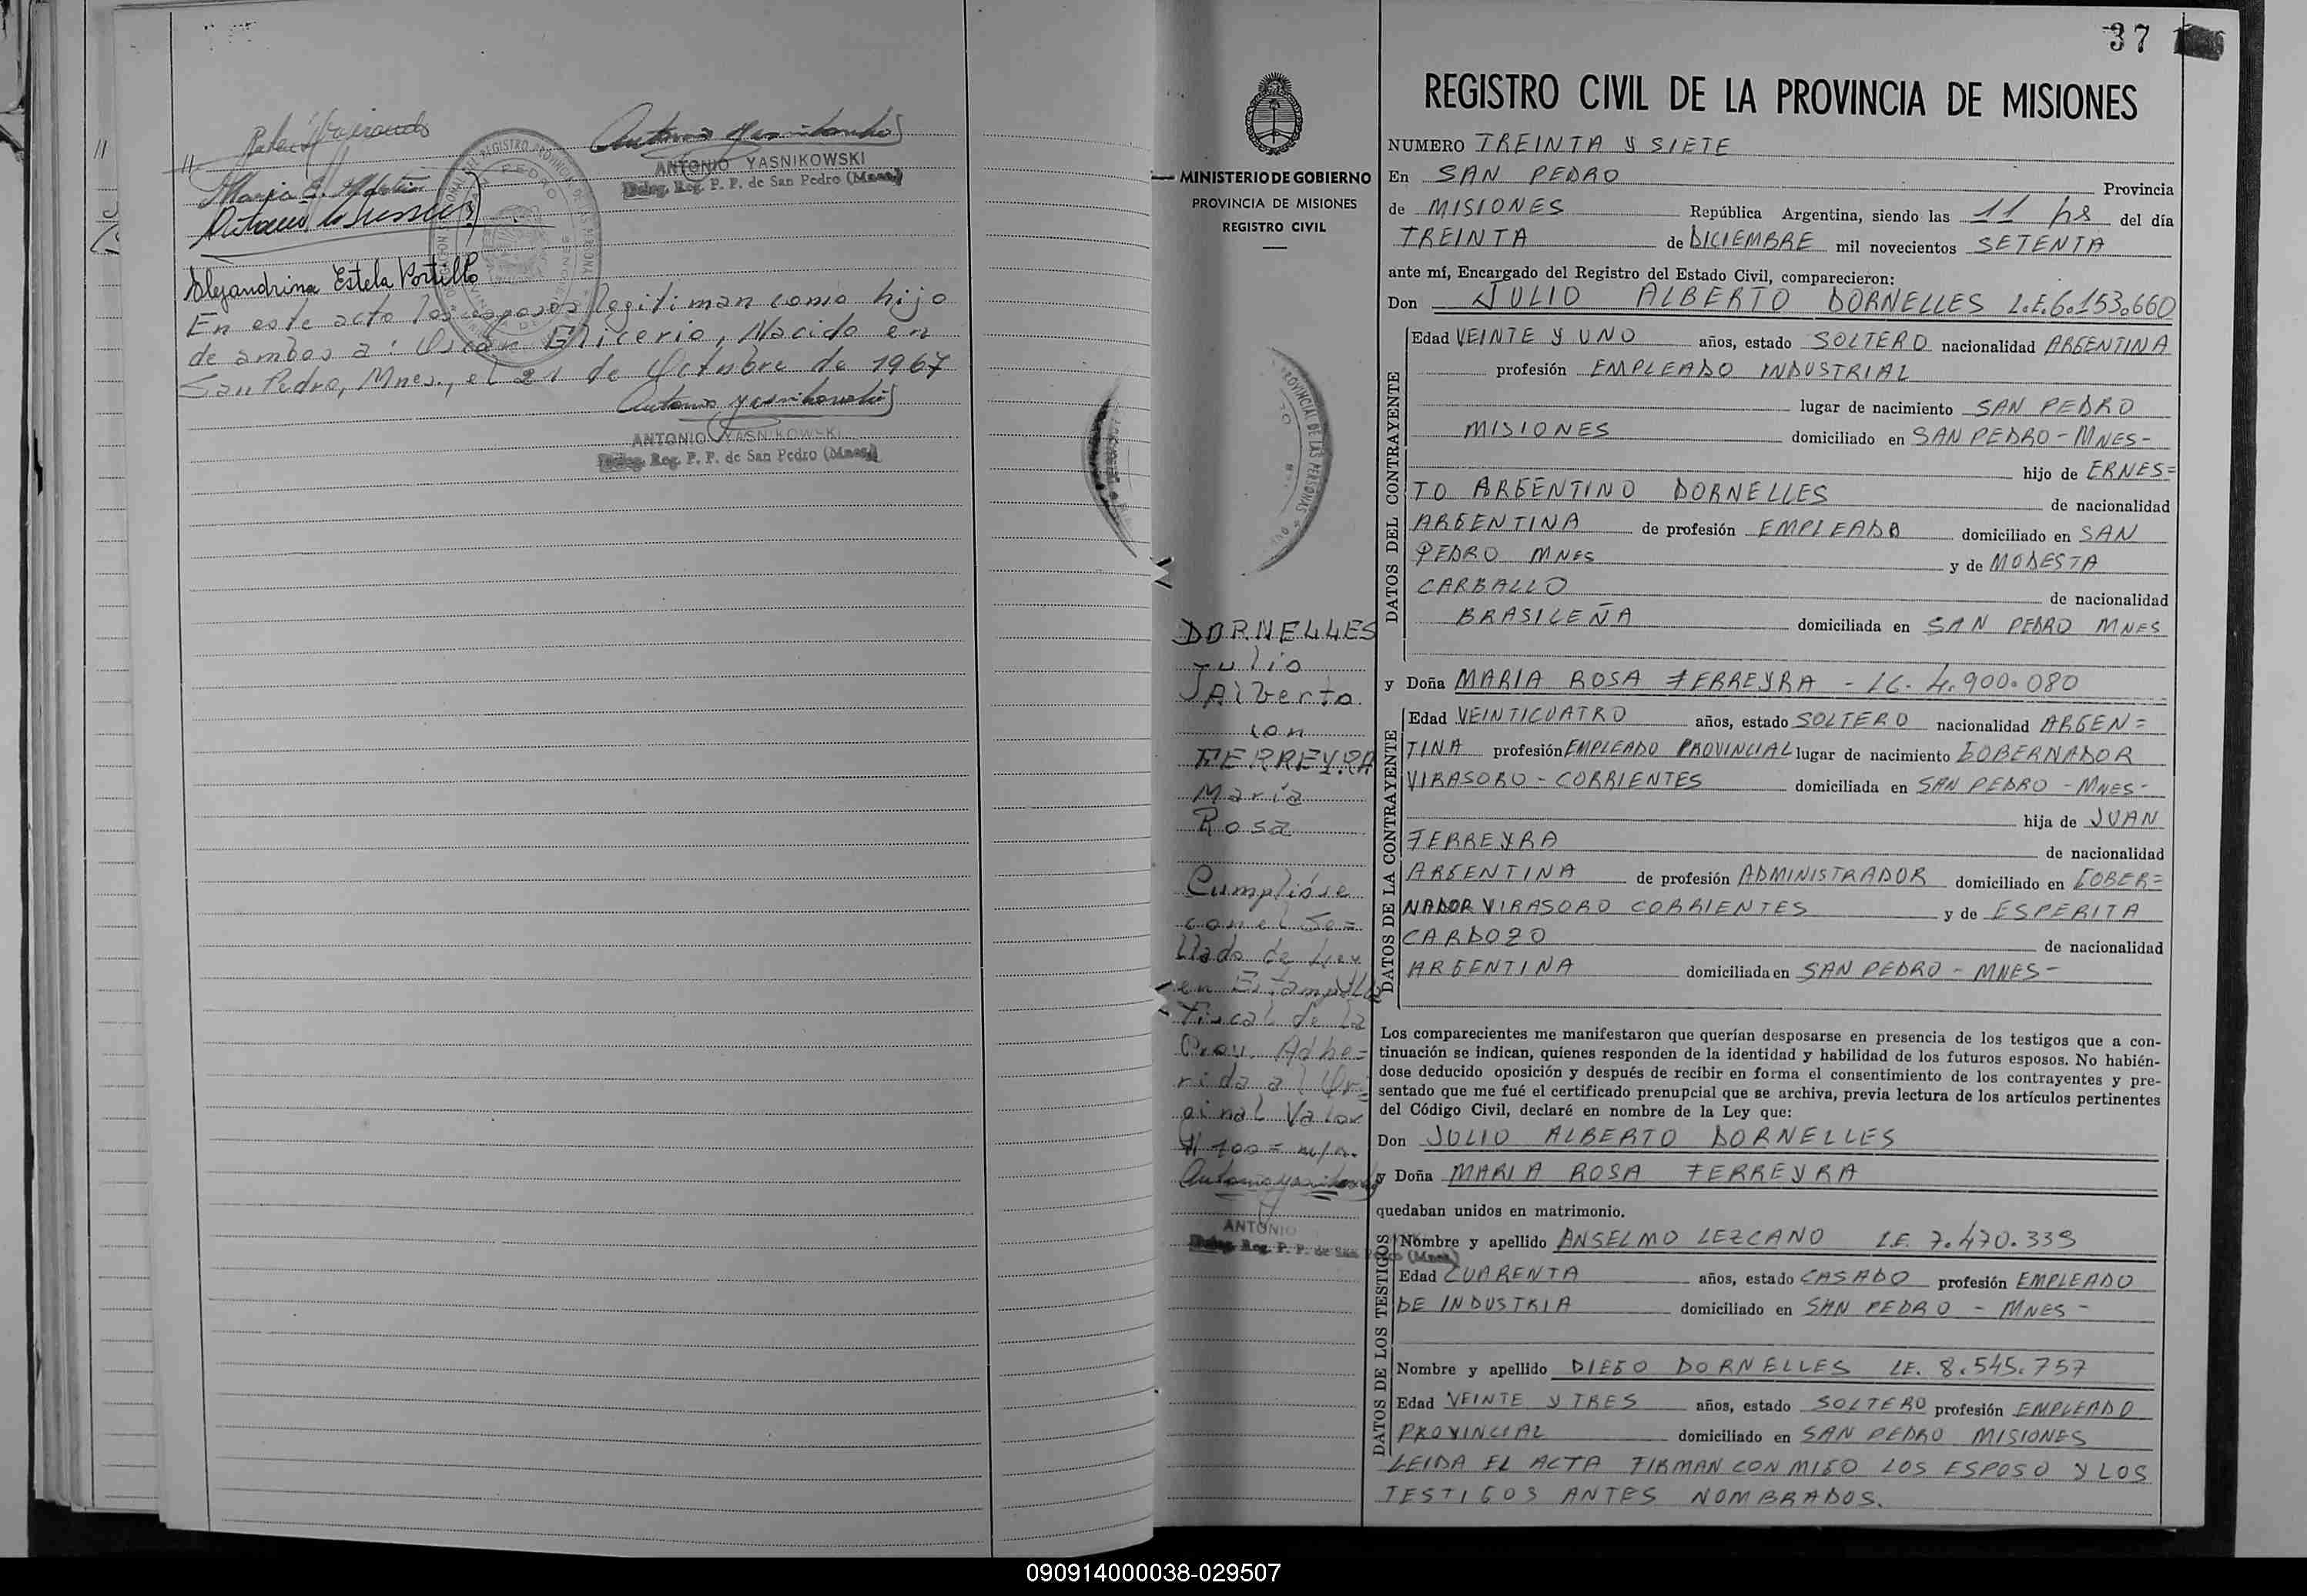 ANTONIO YASNIKOWSKI
Deleg. Reg. P. P. de San Pedro (Mnes.)
Alejandrina Estela Portillo
En este acto los esposos legitiman como hijo
de ambos a: Oscar Glicerio, Nacido en
San Pedro, Mnes., el 21 de Octubre de 1967
ANTONIO YASNIKOWSKI
Deleg. Reg. P. P. de San Pedro (Mnes.)
MINISTERIO DE GOBIERNO
PROVINCIA DE MISIONES
REGISTRO CIVIL
DORNELLES
Julio
Alberto
con
FERREYRA
María
Rosa
Cumplióse
con el Se=
llado de Ley
en Estampilla
Fiscal de la
Prov. Adhe=
rida al Ori=
ginal Valor
$ 100= m/n.
ANTONIO
Deleg. Reg. P. P. de San Pedro (Mnes.)
37
REGISTRO CIVIL DE LA PROVINCIA DE MISIONES
NUMERO TREINTA Y SIETE
En SAN PEDRO Provincia
de MISIONES República Argentina, siendo las 11 hs del día
TREINTA de DICIEMBRE mil novecientos SETENTA
ante mí, Encargado del Registro del Estado Civil, comparecieron:
Don JULIO ALBERTO DORNELLES L.E. 6.153.660
DATOS DEL CONTRAYENTE
Edad VEINTE Y UNO años, estado SOLTERO nacionalidad ARGENTINA
profesión EMPLEADO INDUSTRIAL
lugar de nacimiento SAN PEDRO
MISIONES domiciliado en SAN PEDRO - MNES-
hijo de ERNES=
TO ARGENTINO DORNELLES de nacionalidad
ARGENTINA de profesión EMPLEADO domiciliado en SAN
PEDRO MNES y de MODESTA
CARBALLO de nacionalidad
BRASILEÑA domiciliada en SAN PEDRO MNES
y Doña MARIA ROSA FERREYRA - LC. 4.900.080
DATOS DE LA CONTRAYENTE
Edad VEINTICUATRO años, estado SOLTERO nacionalidad ARGEN=
TINA profesión EMPLEADO PROVINCIAL lugar de nacimiento GOBERNADOR
VIRASORO - CORRIENTES domiciliada en SAN PEDRO - MNES-
hija de JUAN
FERREYRA de nacionalidad
ARGENTINA de profesión ADMINISTRADOR domiciliado en GOBER=
NADOR VIRASORO CORRIENTES y de ESPERITA
CARDOZO de nacionalidad
ARGENTINA domiciliada en SAN PEDRO - MNES-
Los comparecientes me manifestaron que querían desposarse en presencia de los testigos que a con-
tinuación se indican, quienes responden de la identidad y habilidad de los futuros esposos. No habién-
dose deducido oposición y después de recibir en forma el consentimiento de los contrayentes y pre-
sentado que me fué el certificado prenupcial que se archiva, previa lectura de los artículos pertinentes
del Código Civil, declaré en nombre de la Ley que:
Don JULIO ALBERTO DORNELLES
y Doña MARIA ROSA FERREYRA
quedaban unidos en matrimonio.
DATOS DE LOS TESTIGOS
Nombre y apellido ANSELMO LEZCANO LE. 7.470.339
Edad CUARENTA años, estado CASADO profesión EMPLEADO
DE INDUSTRIA domiciliado en SAN PEDRO - MNES -
Nombre y apellido DIEGO DORNELLES LE. 8.545.757
Edad VEINTE Y TRES años, estado SOLTERO profesión EMPLEADO
PROVINCIAL domiciliado en SAN PEDRO MISIONES
LEIDA EL ACTA FIRMAN CON MIGO LOS ESPOSO Y LOS
TESTIGOS ANTES NOMBRADOS.
090914000038-029507